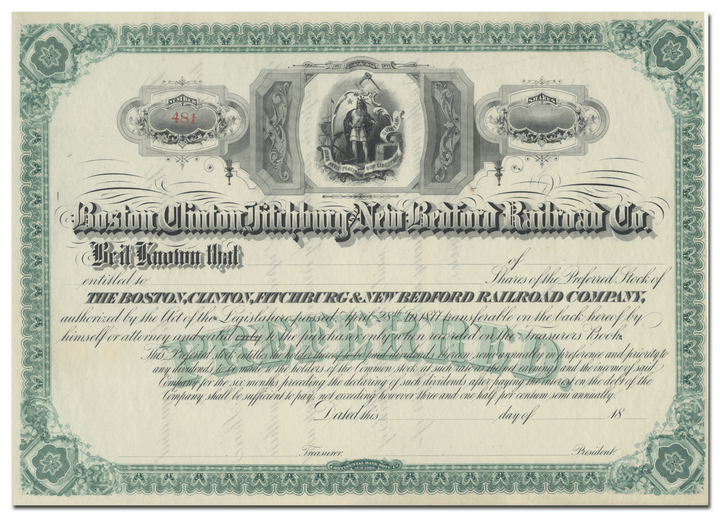 NUMBER
481
SHARES
Boston, Clinton, Fitchburg and New Bedford Railroad Co.
Be it Known that of
entitled to Shares of the Preferred Stock of
THE BOSTON, CLINTON, FITCHBURG & NEW BEDFORD RAILROAD COMPANY,
authorized by the Act of the Legislature passed April 28th 1877 transferable on the back hereof by
himself or attorney and valid only to the purchaser only when recorded on the Treasurers Books.
PREFERRED
This Preferred stock entitles the holder thereof to be paid dividends hereon, semi annually in preference and priority to
any dividends to be made to the holders of the Common stock at such rate as the net earnings and the income of said
Company for the six months preceding the declaring of such dividends after paying the interest on the debt of the
Company shall be sufficient to pay, not exceeding however three and one half per centum semi annually.
Dated this day of 18
Treasurer. President.